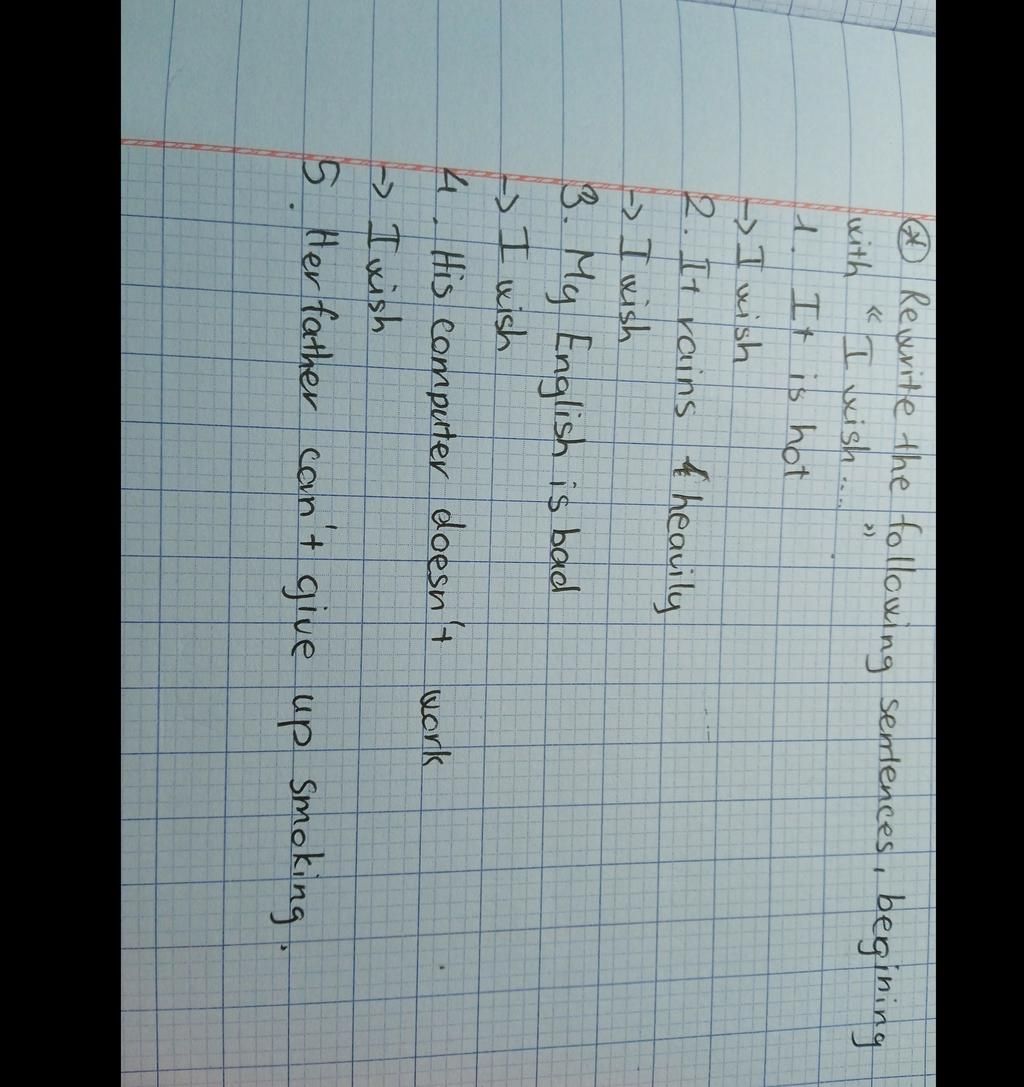 * Rewrite the following sentences, begining
with « I wish..... »
1. It is hot
-> I wish
2. It rains heavily
-> I wish
3. My English is bad
-> I wish
4. His computer doesn't work
-> I wish
5. Her father can't give up smoking.